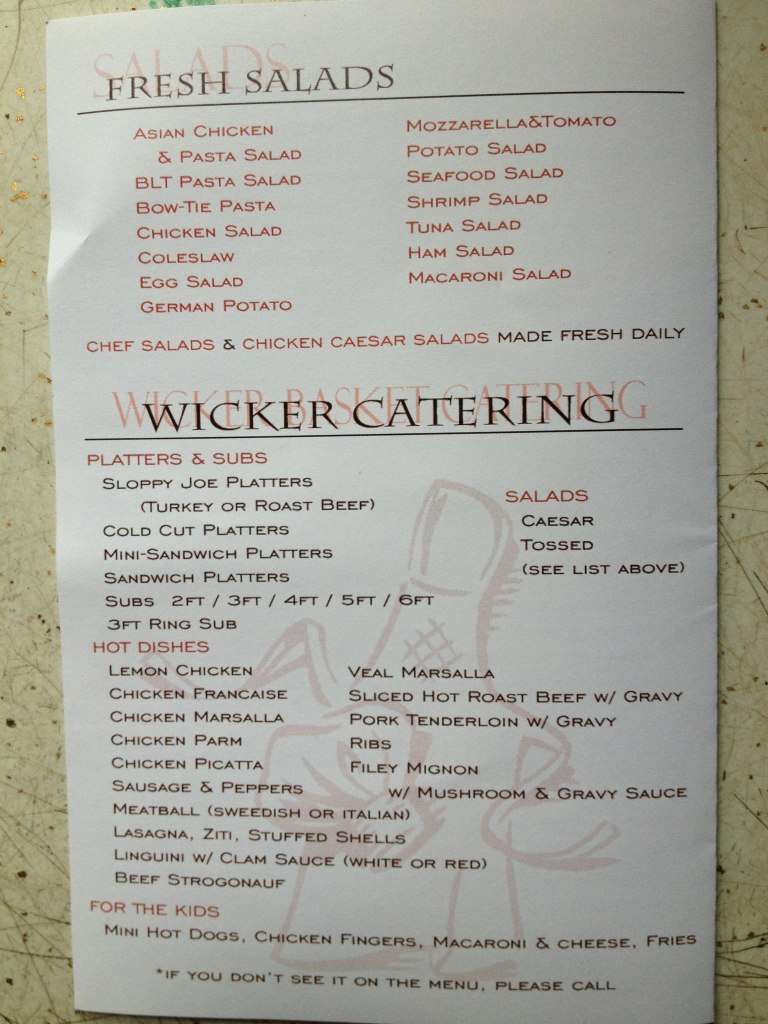 SALADS
FRESH SALADS
ASIAN CHICKEN
& PASTA SALAD
BLT PASTA SALAD
BOW-TIE PASTA
CHICKEN SALAD
COLESLAW
EGG SALAD
GERMAN POTATO
MOZZARELLA&TOMATO
POTATO SALAD
SEAFOOD SALAD
SHRIMP SALAD
TUNA SALAD
HAM SALAD
MACARONI SALAD
CHEF SALADS & CHICKEN CAESAR SALADS MADE FRESH DAILY
WICKER BASKET CATERING
WICKER CATERING
PLATTERS & SUBS
SLOPPY JOE PLATTERS
(TURKEY OR ROAST BEEF)
COLD CUT PLATTERS
MINI-SANDWICH PLATTERS
SANDWICH PLATTERS
SUBS 2FT / 3FT / 4FT / 5FT / 6FT
3FT RING SUB
SALADS
CAESAR
TOSSED
(SEE LIST ABOVE)
HOT DISHES
LEMON CHICKEN
CHICKEN FRANCAISE
CHICKEN MARSALLA
CHICKEN PARM
CHICKEN PICATTA
SAUSAGE & PEPPERS
MEATBALL (SWEEDISH OR ITALIAN)
LASAGNA, ZITI, STUFFED SHELLS
LINGUINI W/ CLAM SAUCE (WHITE OR RED)
BEEF STROGONAUF
VEAL MARSALLA
SLICED HOT ROAST BEEF W/ GRAVY
PORK TENDERLOIN W/ GRAVY
RIBS
FILEY MIGNON
W/ MUSHROOM & GRAVY SAUCE
FOR THE KIDS
MINI HOT DOGS, CHICKEN FINGERS, MACARONI & CHEESE, FRIES
*IF YOU DON'T SEE IT ON THE MENU, PLEASE CALL